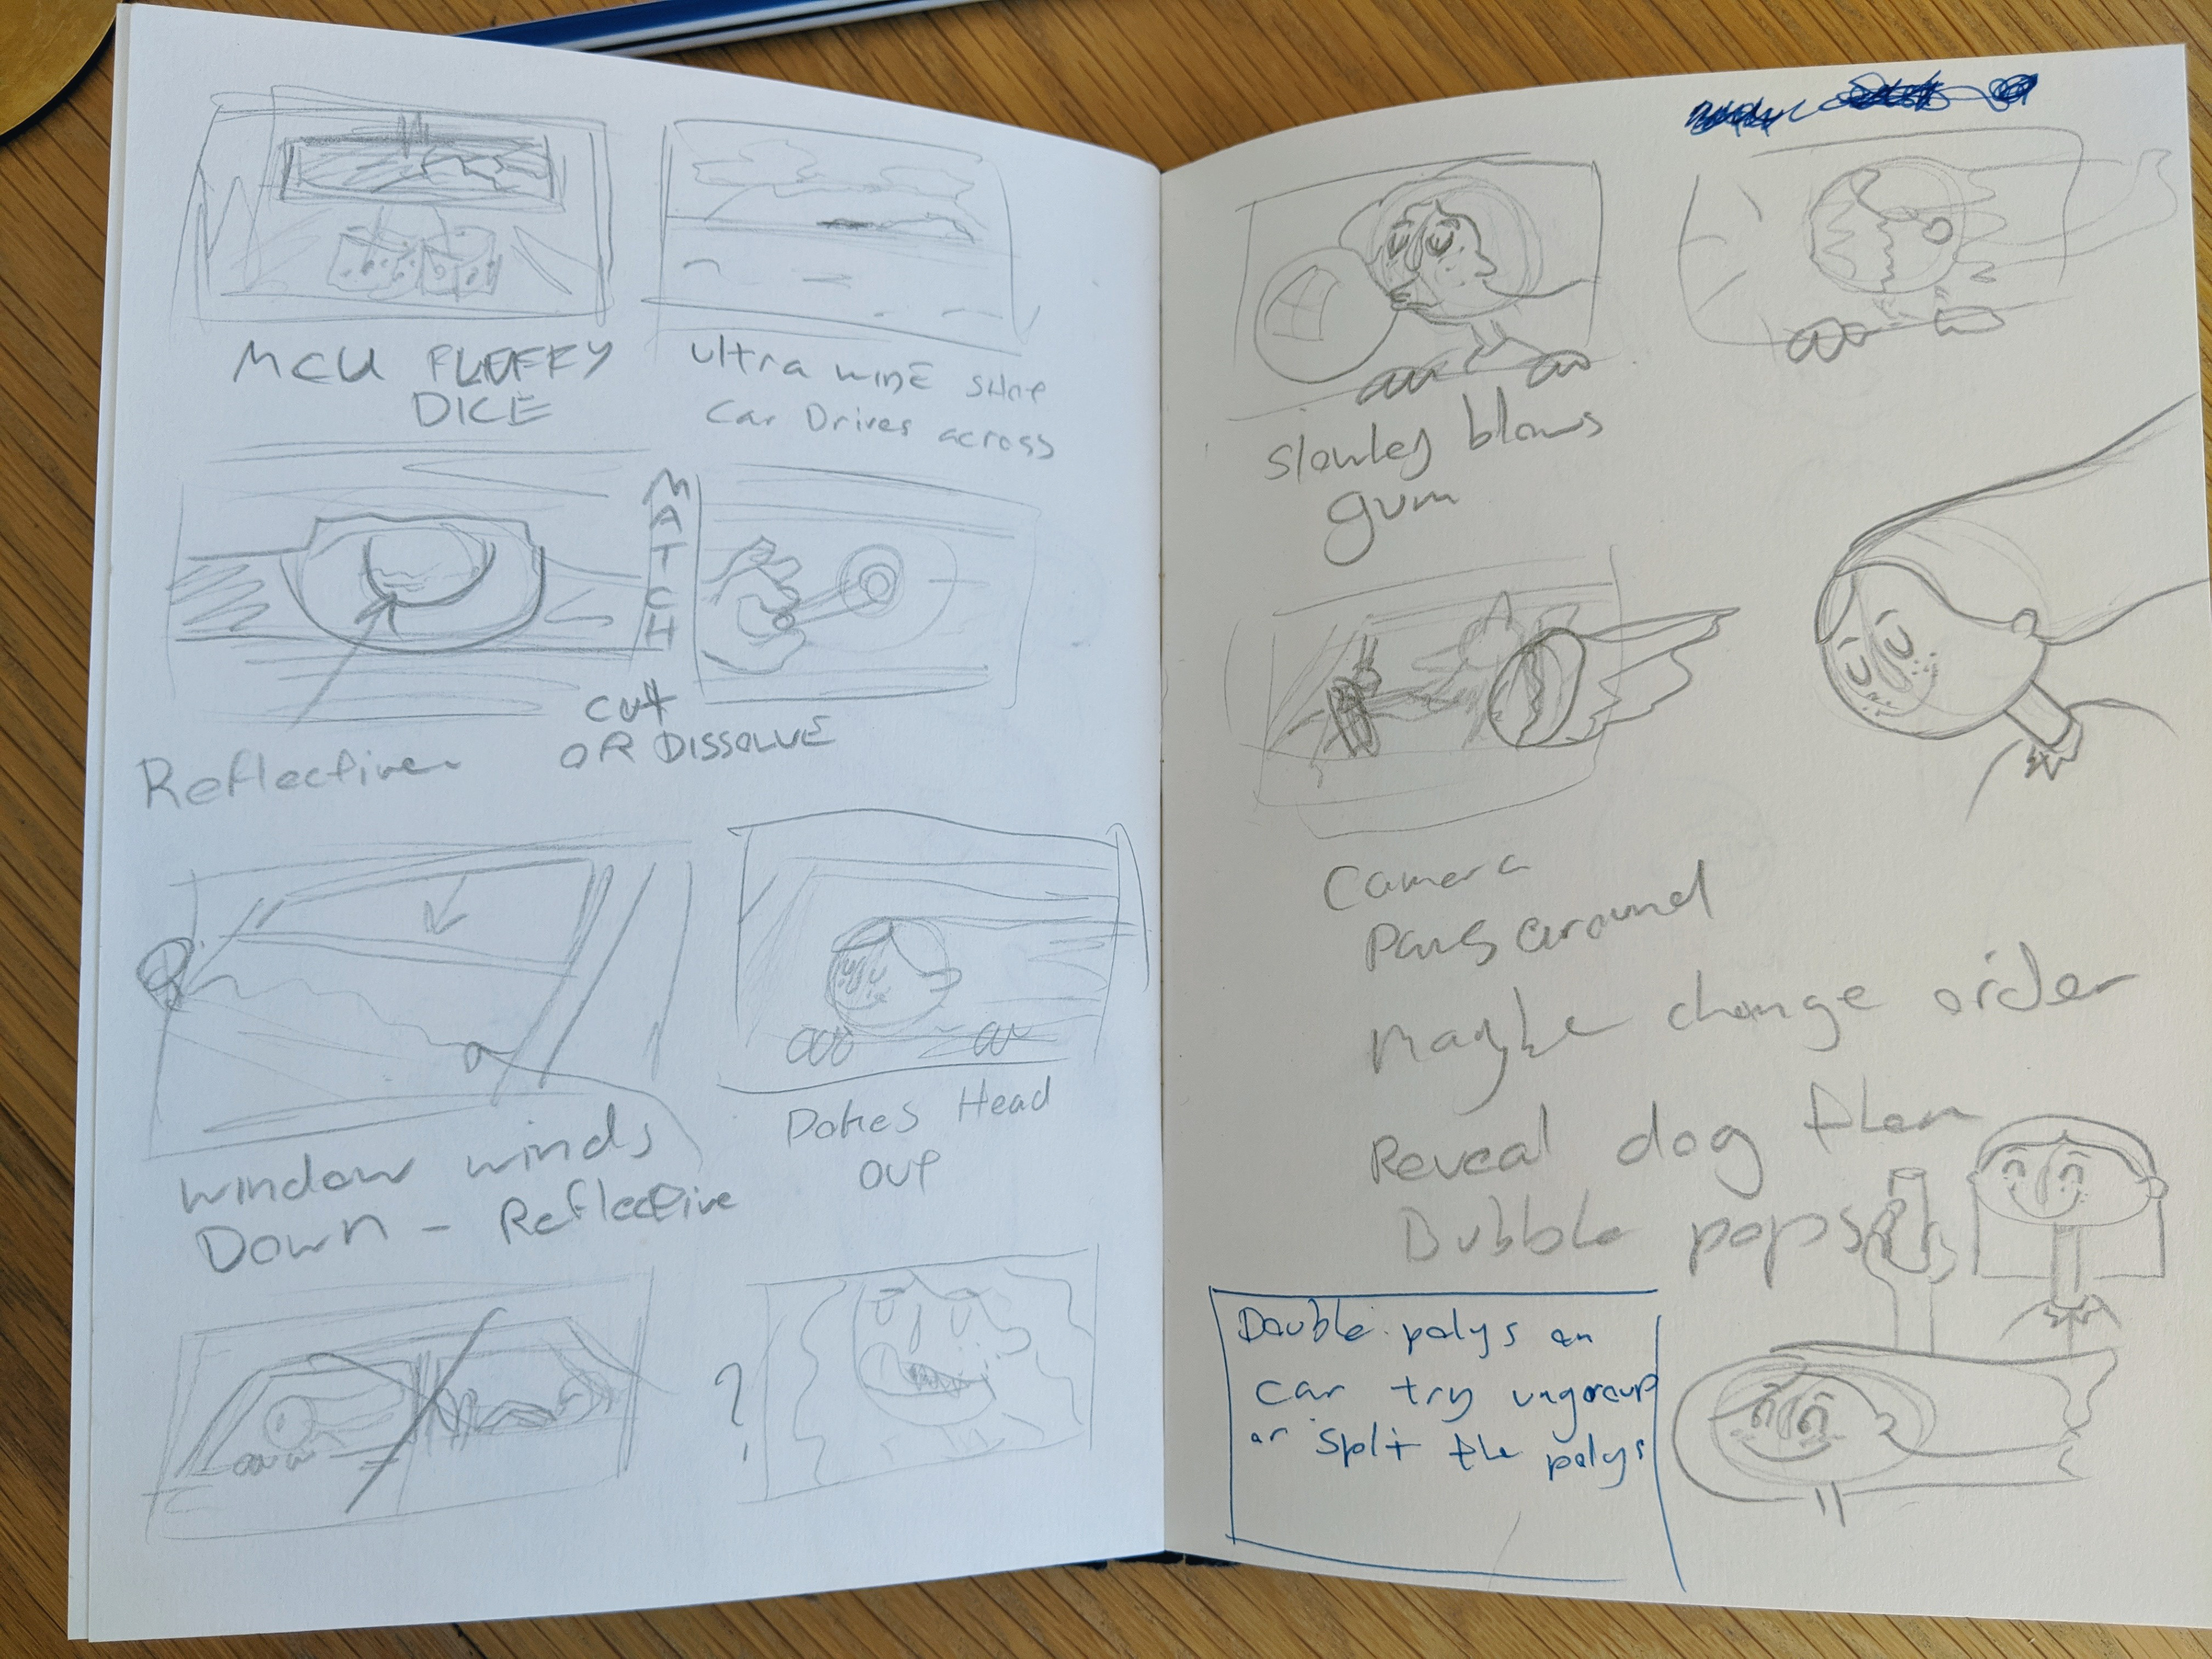 MCU FLUFFY
DICE
Ultra wide shot
Car Drives across
MATCH
CUT
OR DISSOLVE
Reflective
window winds
Down - Reflective
Pokes Head
out
?
Slowley blows
gum
Camera
Pans around
Maybe change order
Reveal dog then
Bubble pops
Double polys on
car try ungroup
or split the polys